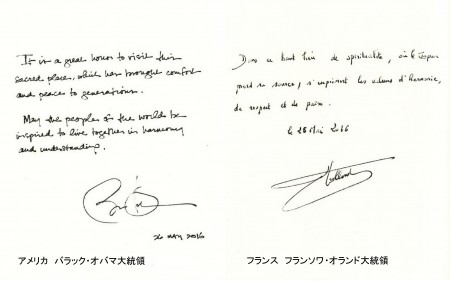 It is a great honor to visit this
sacred place, which has brought comfort
and peace to generations.
May the peoples of the world be
inspired to live together in harmony
and understanding.
26 MAY 2016
アメリカ バラック・オバマ大統領
Dans ce haut lieu de spiritualité, où le Japon
prend sa source, s'expriment les valeurs d'harmonie,
de respect et de paix.
Le 26 Mai 2016
フランス フランソワ・オランド大統領